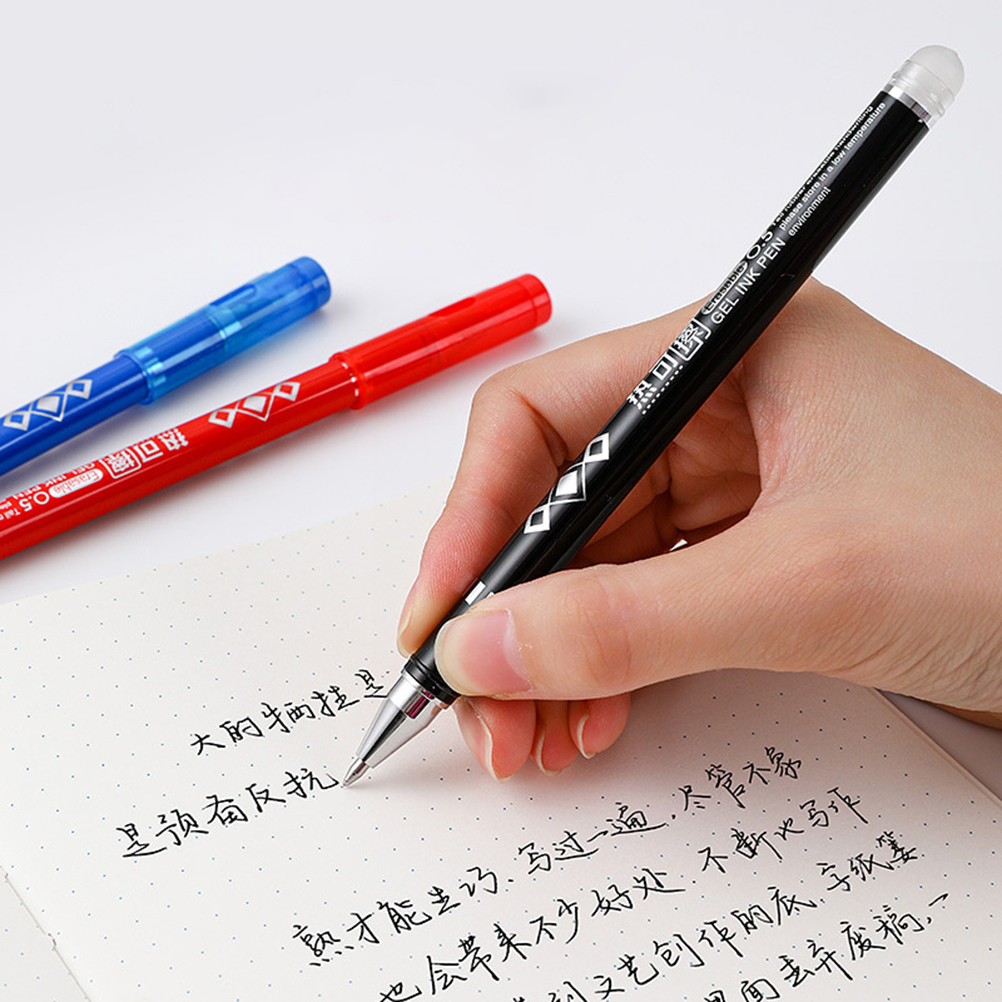 热可擦
Erasable 0.5
GEL INK PEN
please store in a low temperature
environment
热可擦
GEL INK PEN
Erasable 0.5
大的牺挂是
是预奋反抗
熟才能生巧、写过一遍,尽管不象
也会带来不少好处,不断地写作
文艺创作的底,字纸篓
里面丢弃废稿,一